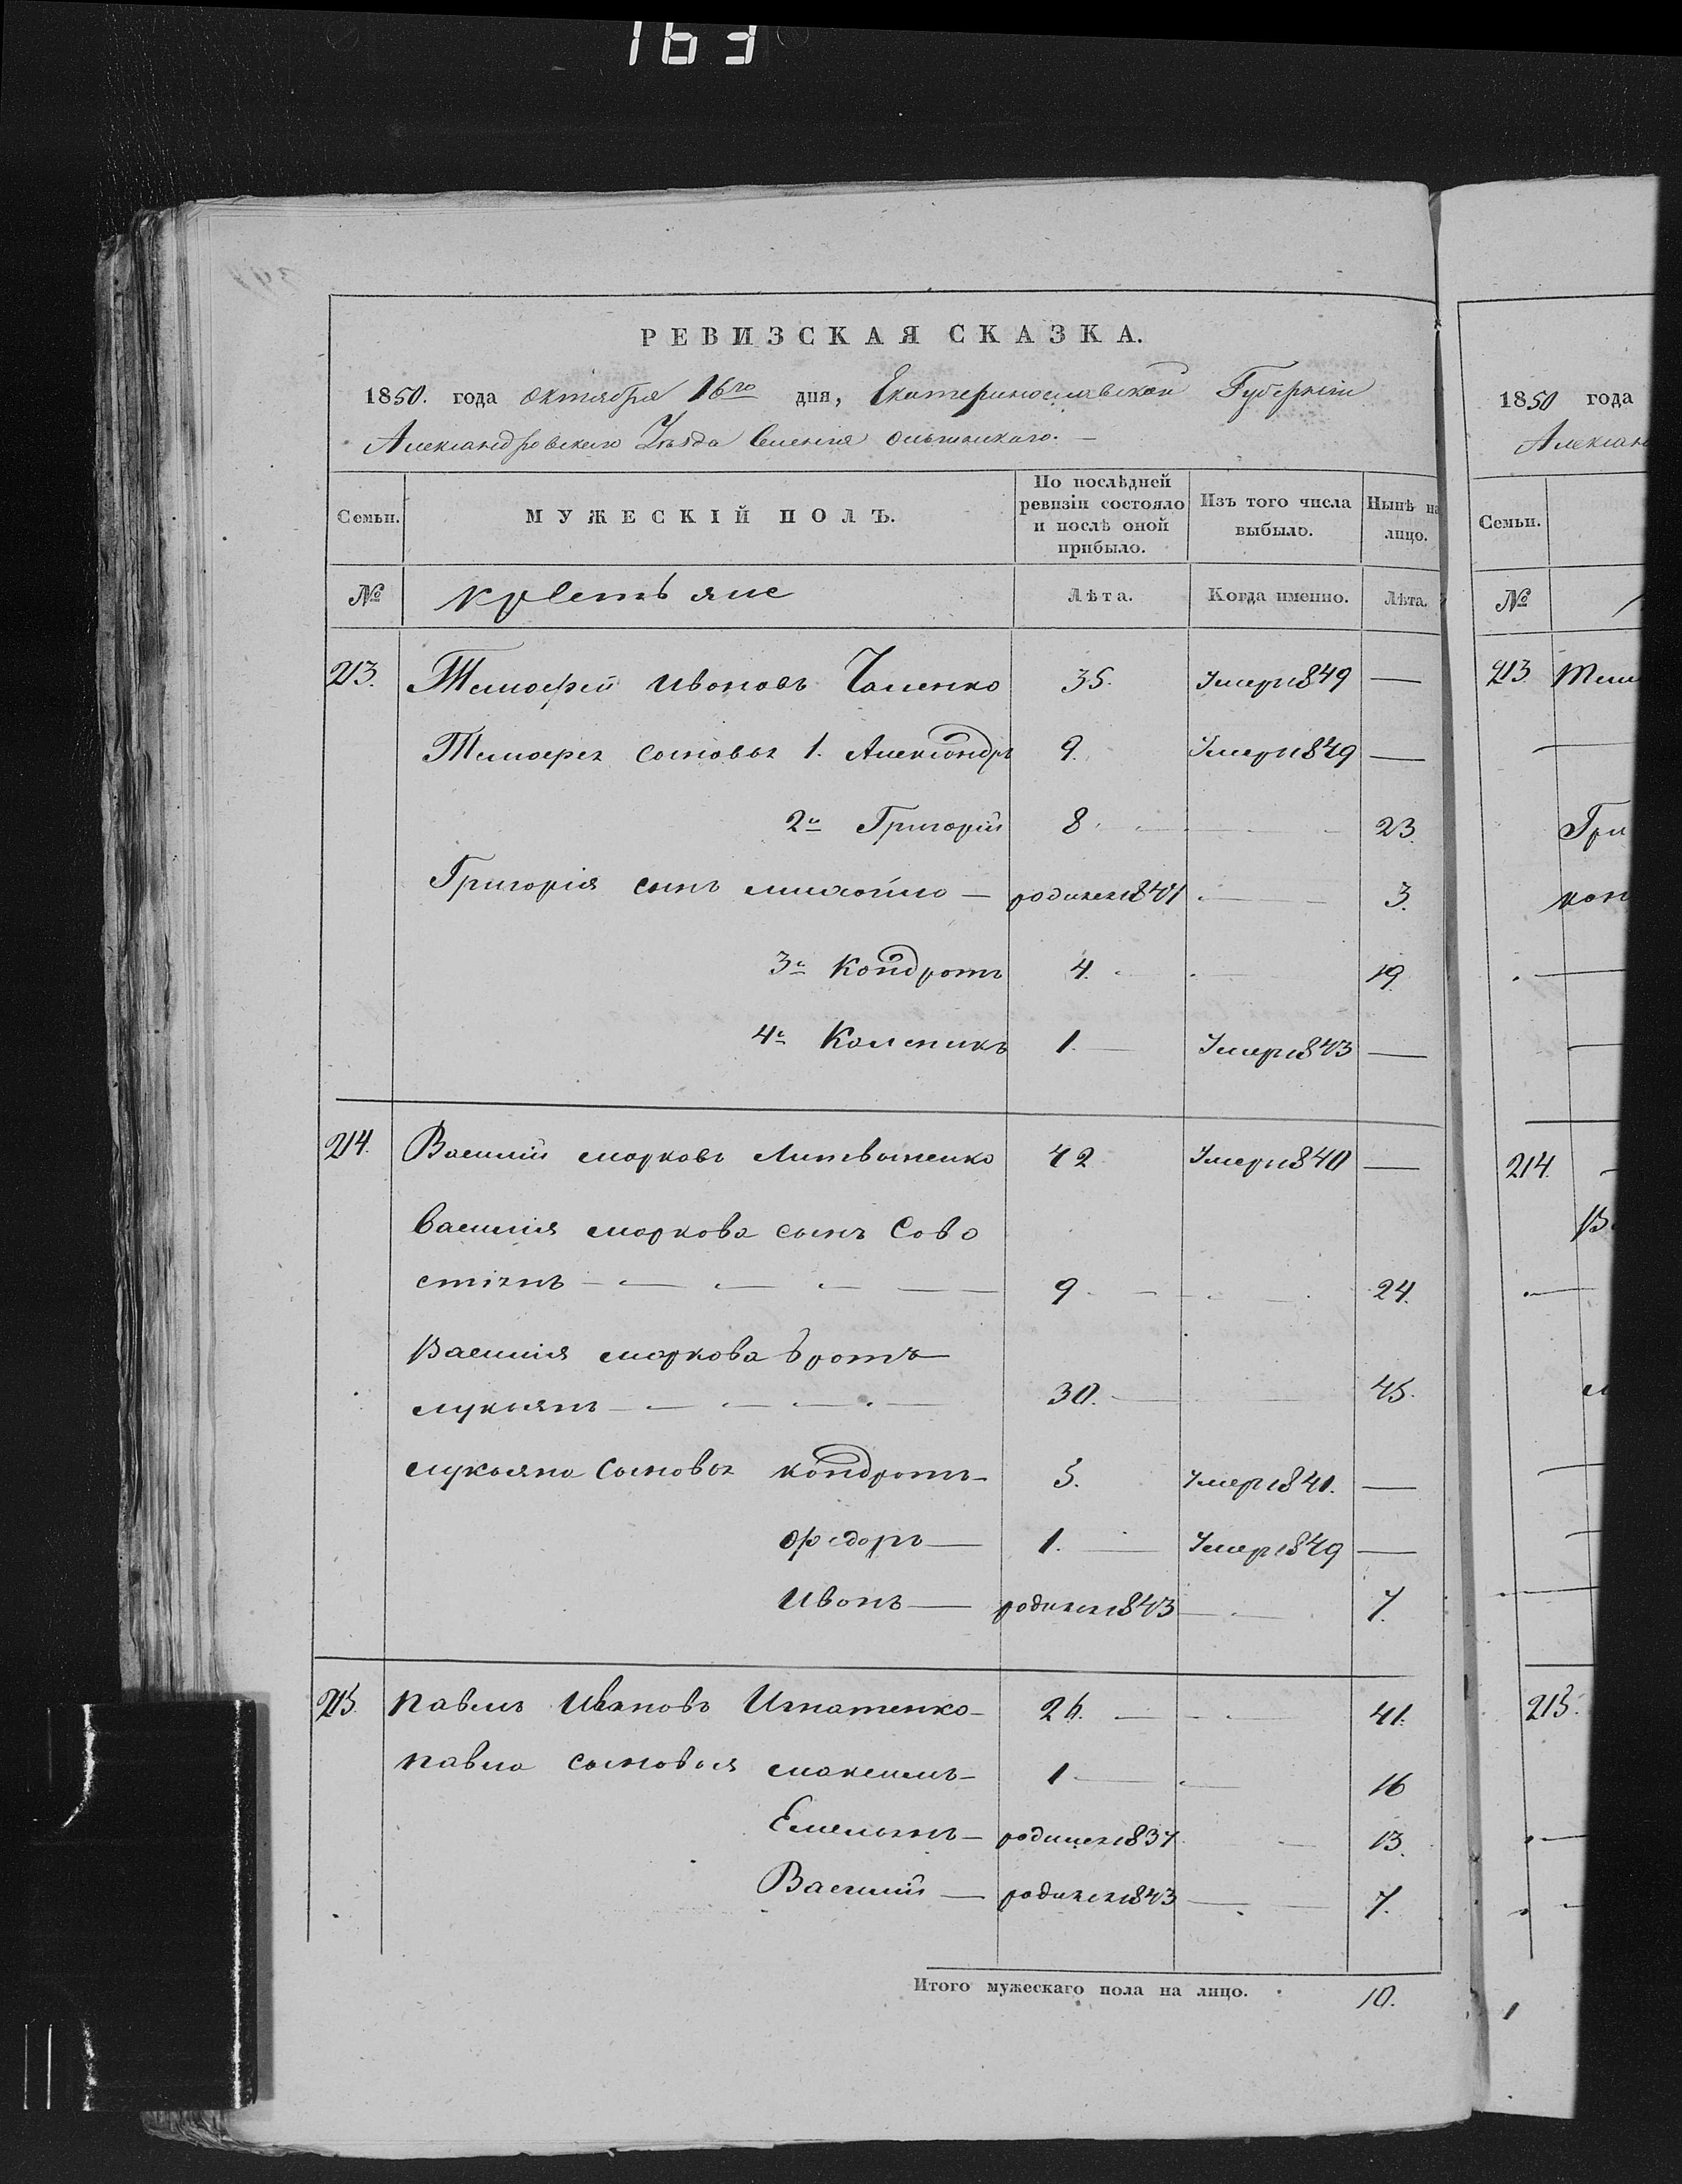 163
РЕВИЗСКАЯ СКАЗКА.
1850. года октября 16го дня, Екатеринославской Губернiи
Александровского Уѣзда Селенiя
Семьи. МУЖЕСКIЙ ПОЛЪ. По послѣдней ревизiи состояло и послѣ оной прибыло. Изъ того числа выбыло. Нынѣ на лицо.
№ крестьяне Лѣта. Когда именно. Лѣта.
213. Тимофей Ивановъ Чаленко 35. Умеръ 1849 —
Тимофея сыновья 1. Александръ 9. Умеръ 1849 —
2й Григорiй 8 23.
Григорiя сынъ михайло — родился 1847 3.
3й Кондратъ 4. 19.
4й Каленикъ 1. — Умеръ 1843 —
214. Василiй марковъ Литвыненко 42 Умеръ 1840 —
Василiя маркова сынъ Сова
стiянъ — 9 24.
Василiя маркова братъ
лукьянъ — 30. 45.
лукьяна сыновья кондратъ 5. Умеръ 1841. —
федоръ — 1. — Умеръ 1849 —
Иванъ — родился 1843 7.
215. павелъ Ивановъ Игнатенко — 26. — 41.
павла сыновья максимъ — 1 — 16
Емельянъ — родился 1837 13.
Василiй — родился 1843 7.
Итого мужескаго пола на лицо. 10.
1850 года
Семьи.
№
213
Гри
214.
215.